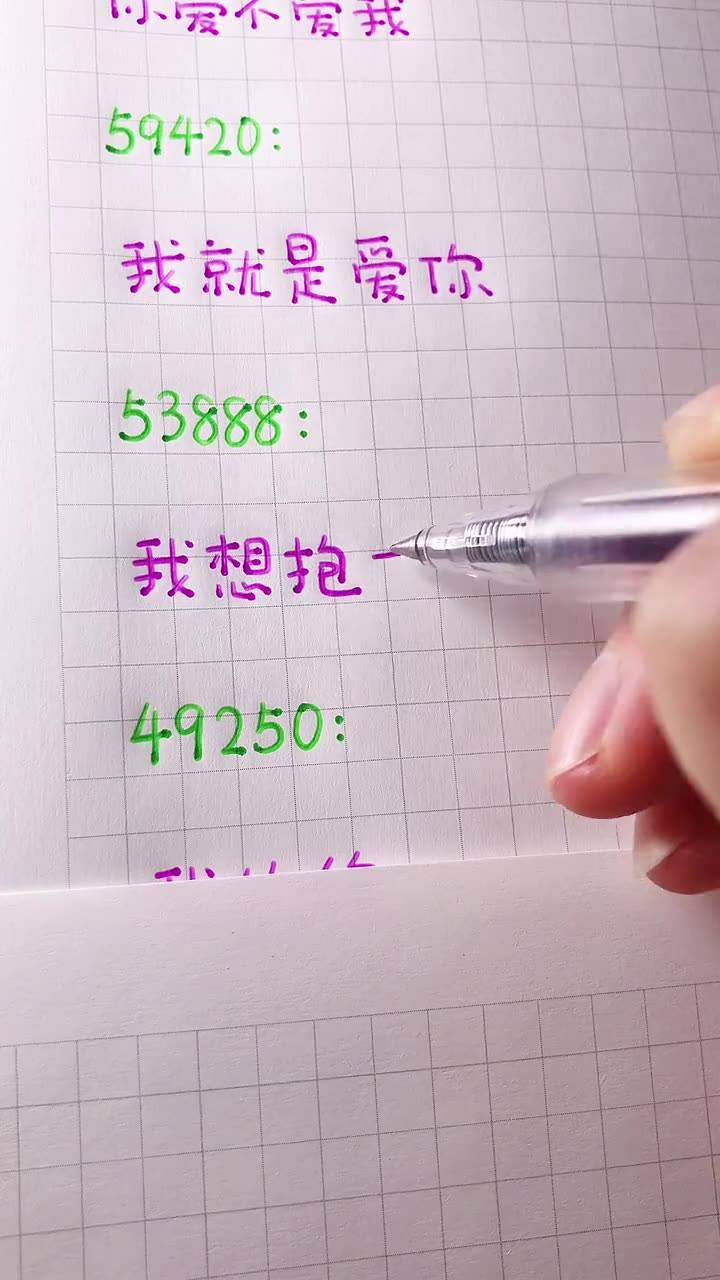 你爱不爱我
59420:
我就是爱你
53888:
我想抱一
49250: